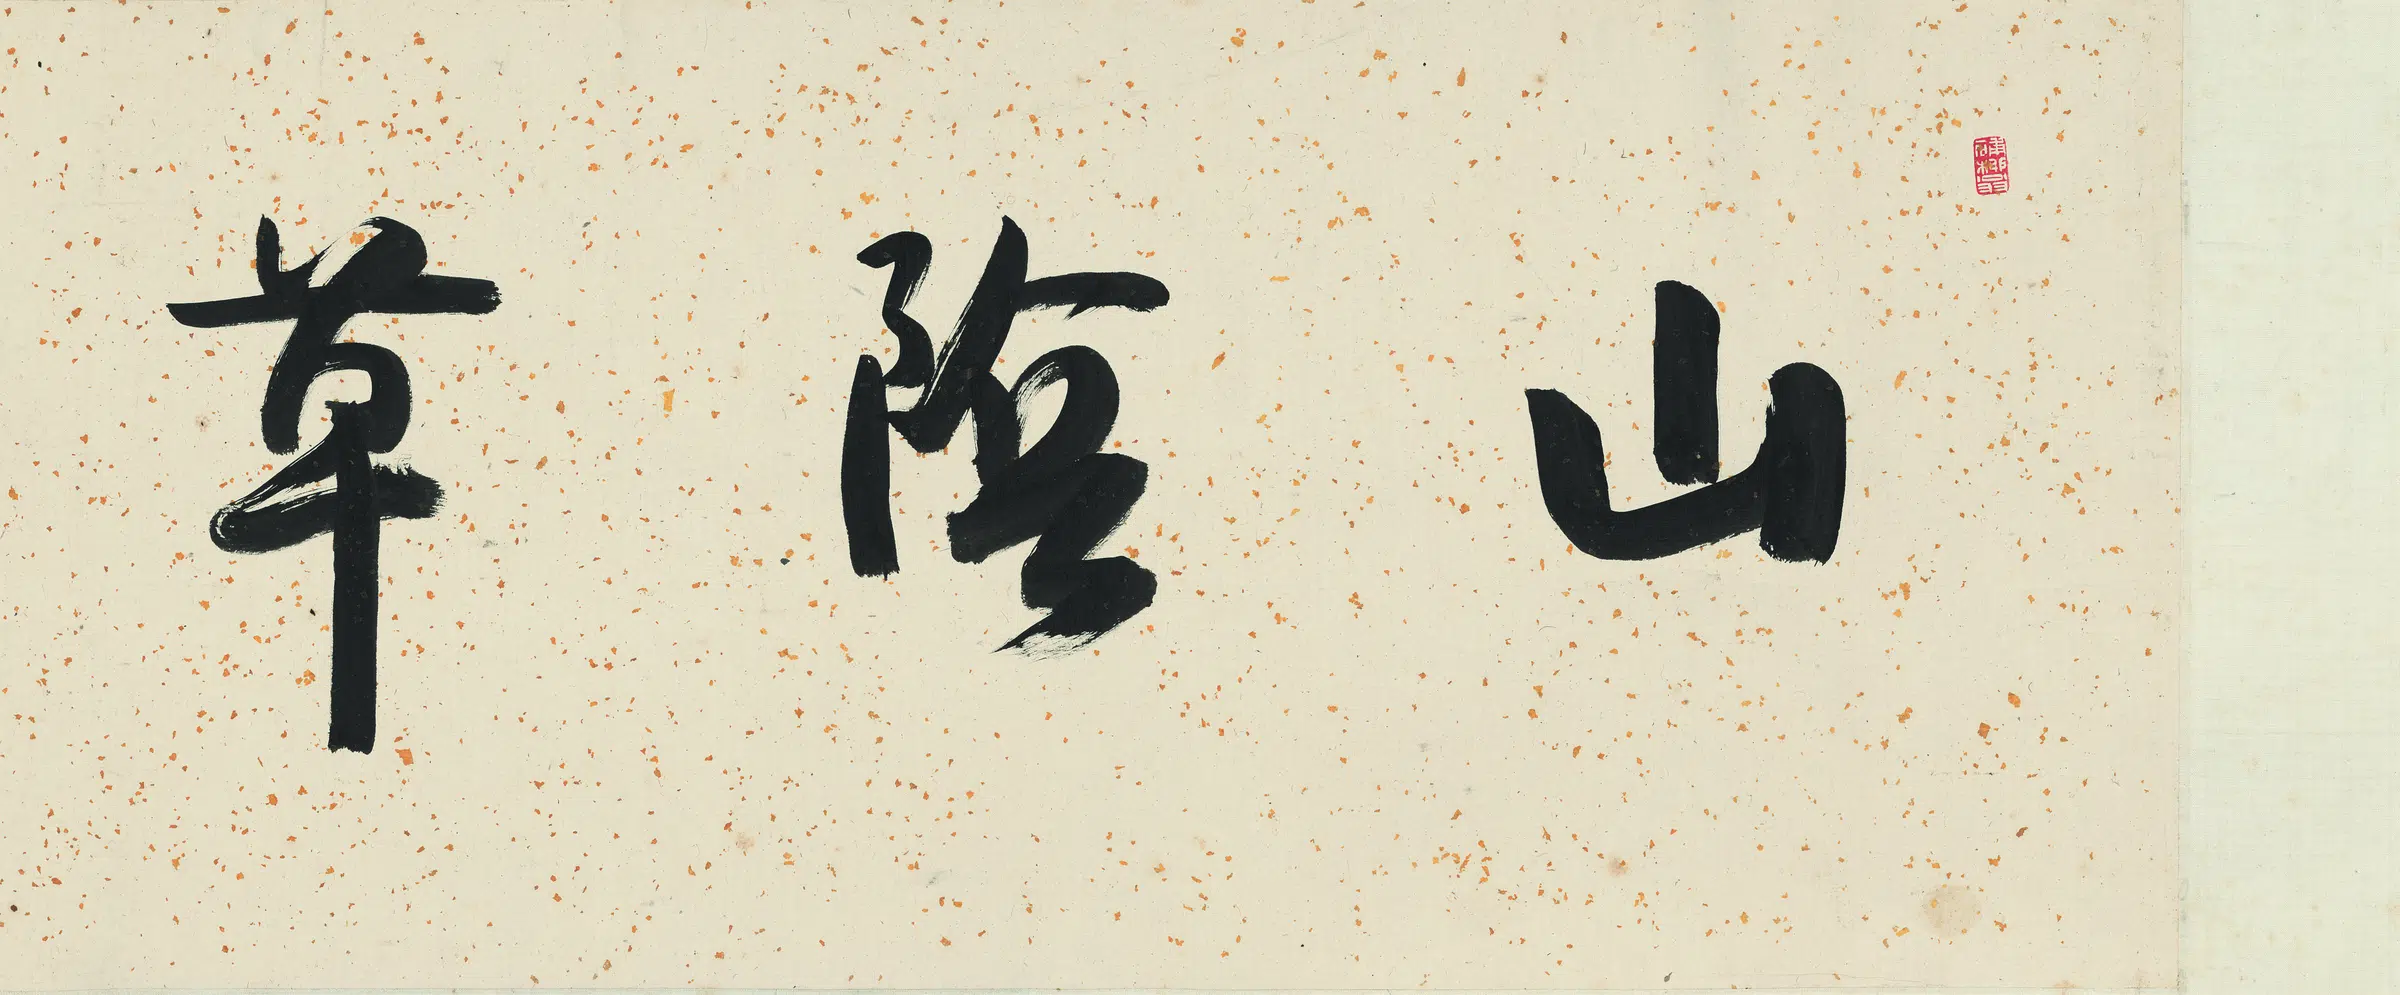 山陰草